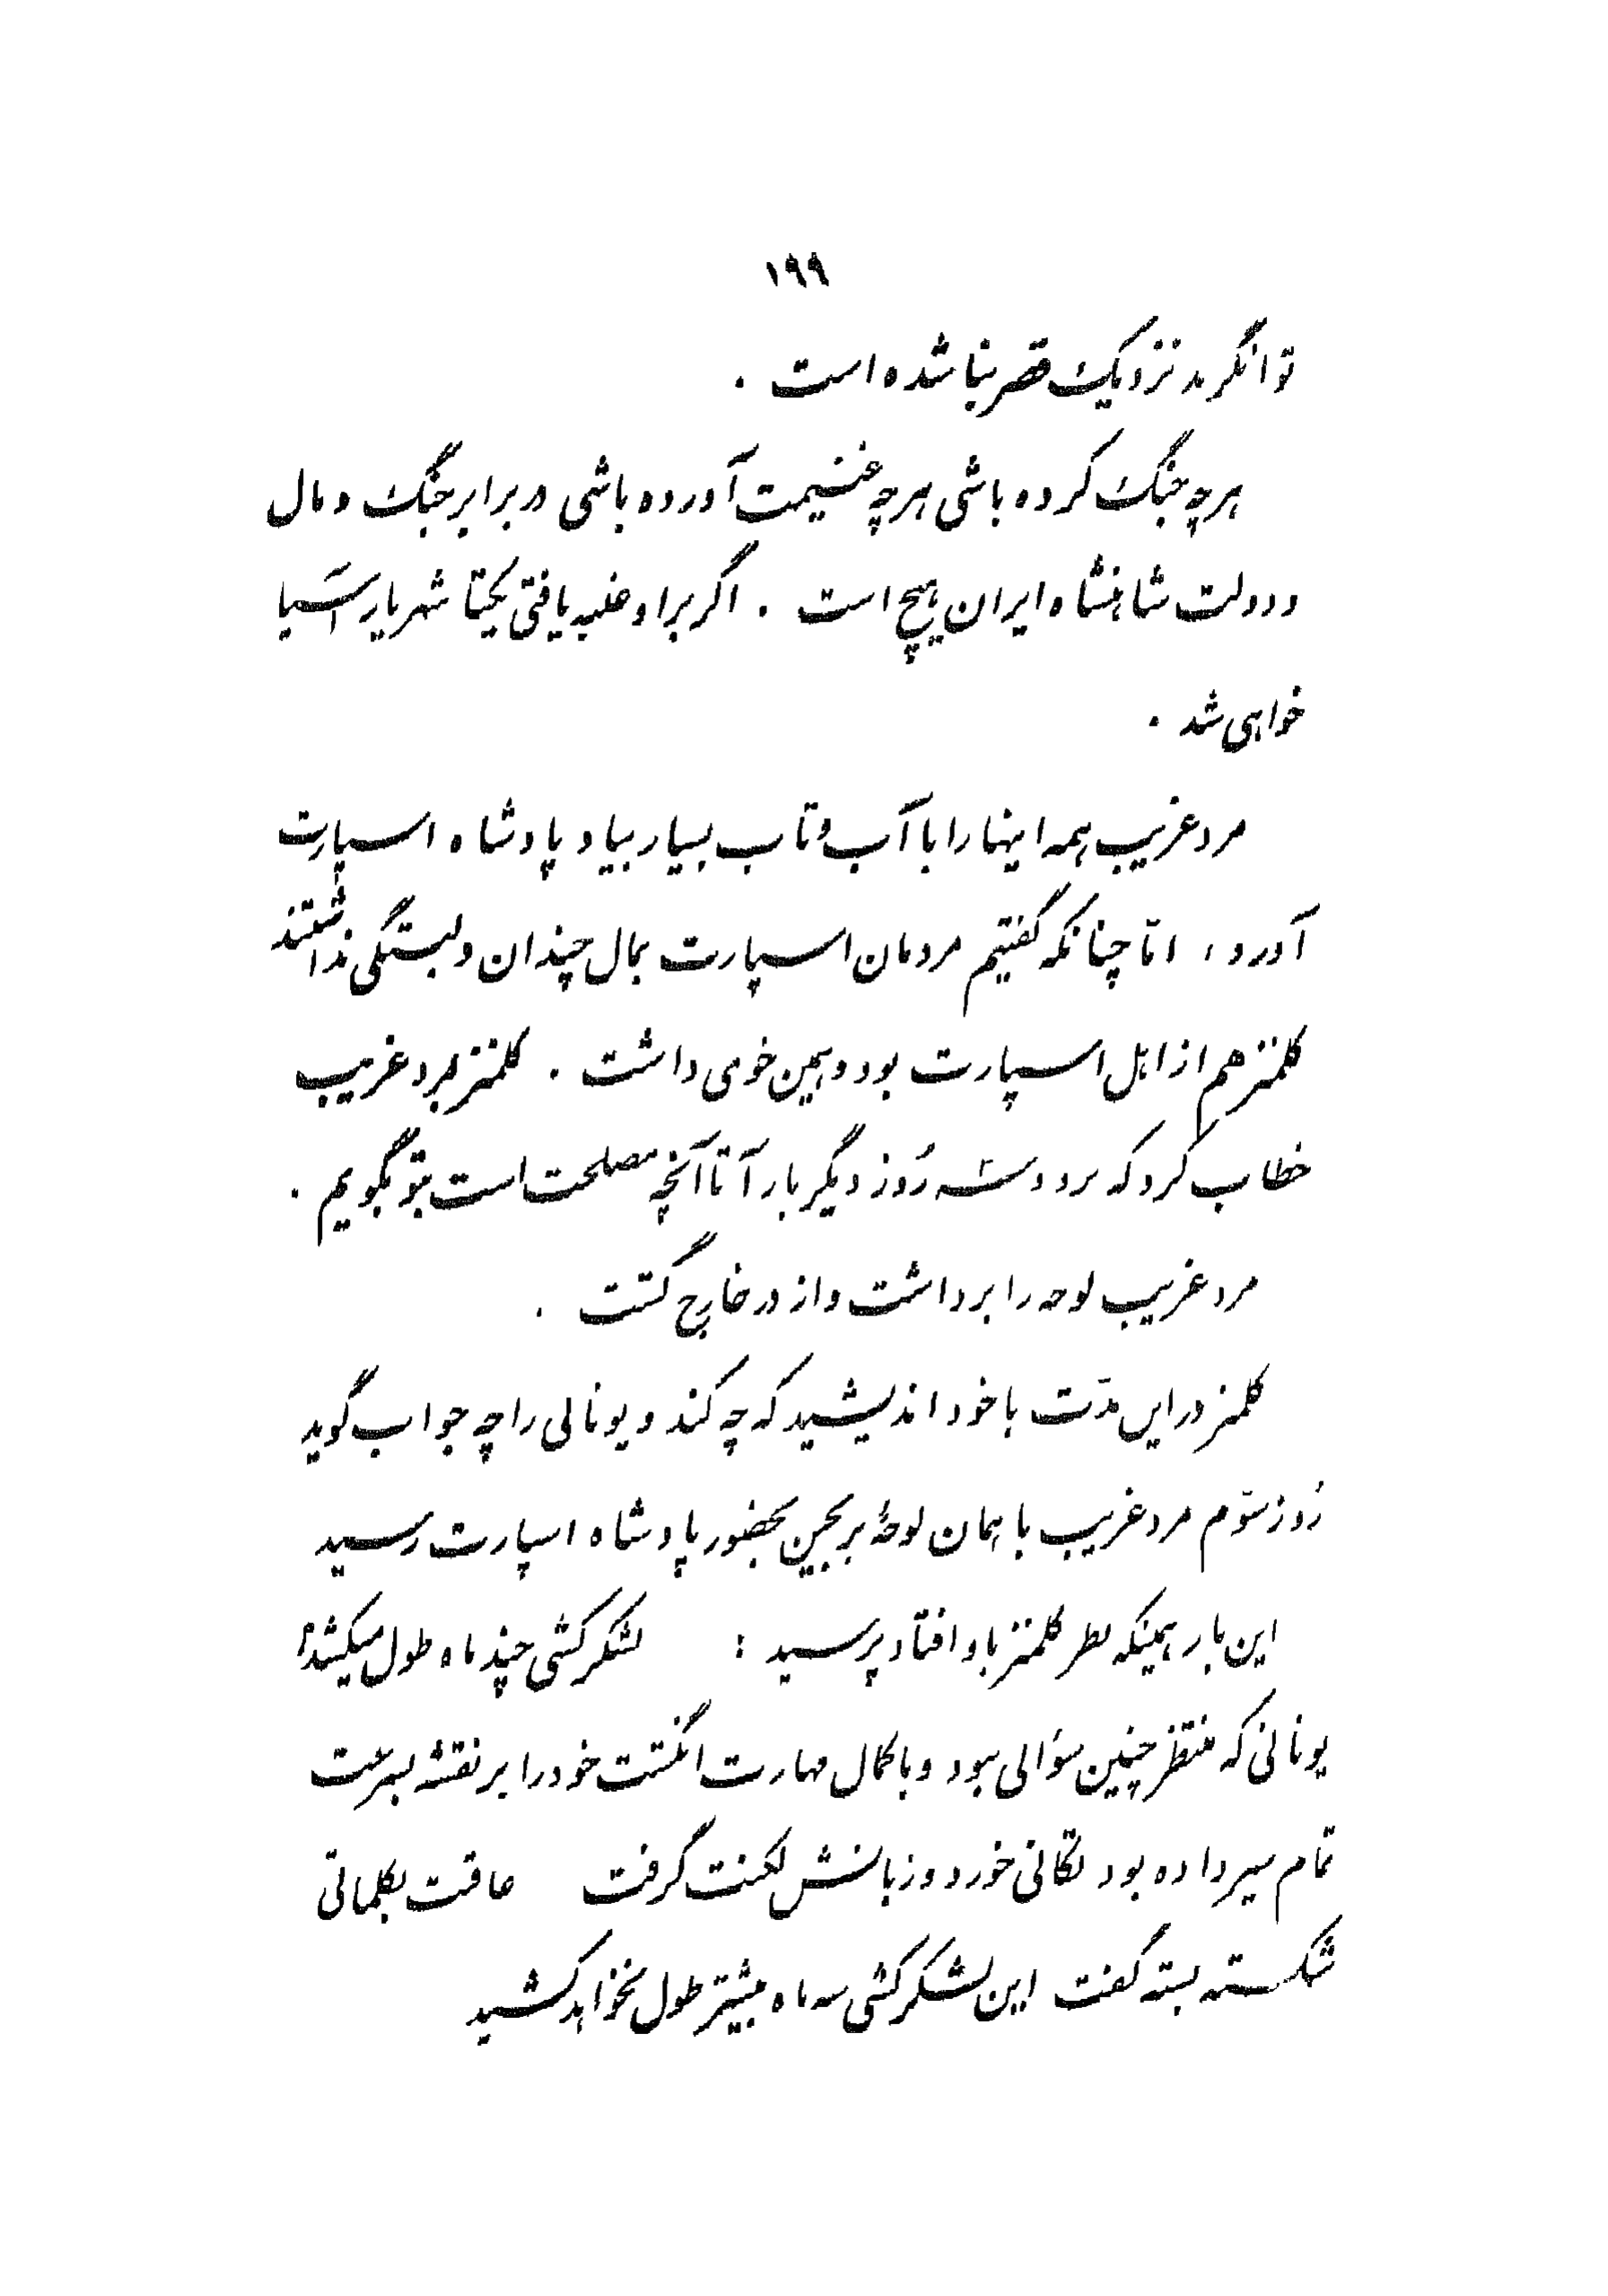 ۱۹۹
توانگرند نزدیک قصر بنا شده است .
هرچه جنگ کرده باشی هرچه غنیمت آورده باشی در برابر جنگ و مال
و دولت شاهنشاه ایران هیچ است . اگر بر او غلبه یافتی یکتا شهریار آسیا
خواهی شد .
مرد غریب همه اینها را با آب و تاب بسیار بیاد پادشاه اسپارت
آورد ، امّا چنانکه گفتیم مردمان اسپارت بمال چندان دلبستگی نداشتند
کلمنز هم از اهل اسپارت بود و همین خوی داشت . کلمنز بمرد غریب
خطاب کرد که برو و سه رُوز دیگر باز آ تا آنچه مصلحت است بتو بگویم .
مرد غریب لوحه را برداشت و از در خارج گشت .
کلمنز در این مدّت با خود اندیشید که چه کند و یونانی را چه جواب گوید
رُوز سوّم مرد غریب با همان لوحهٔ برنجین بحضور پادشاه اسپارت رسید
این بار همینکه نظر کلمنز باو افتاد پرسید : لشکرکشی چند ماه طول میکشد؟
یونانی که منتظر چنین سؤالی نبود و با کمال مهارت انگشت خود را بر نقشه بسرعت
تمام سیر داده بود تکانی خورد و زبانش لکنت گرفت عاقبت بکلماتی
شکسته بسته گفت این لشکرکشی سه ماه بیشتر طول نخواهد کشید